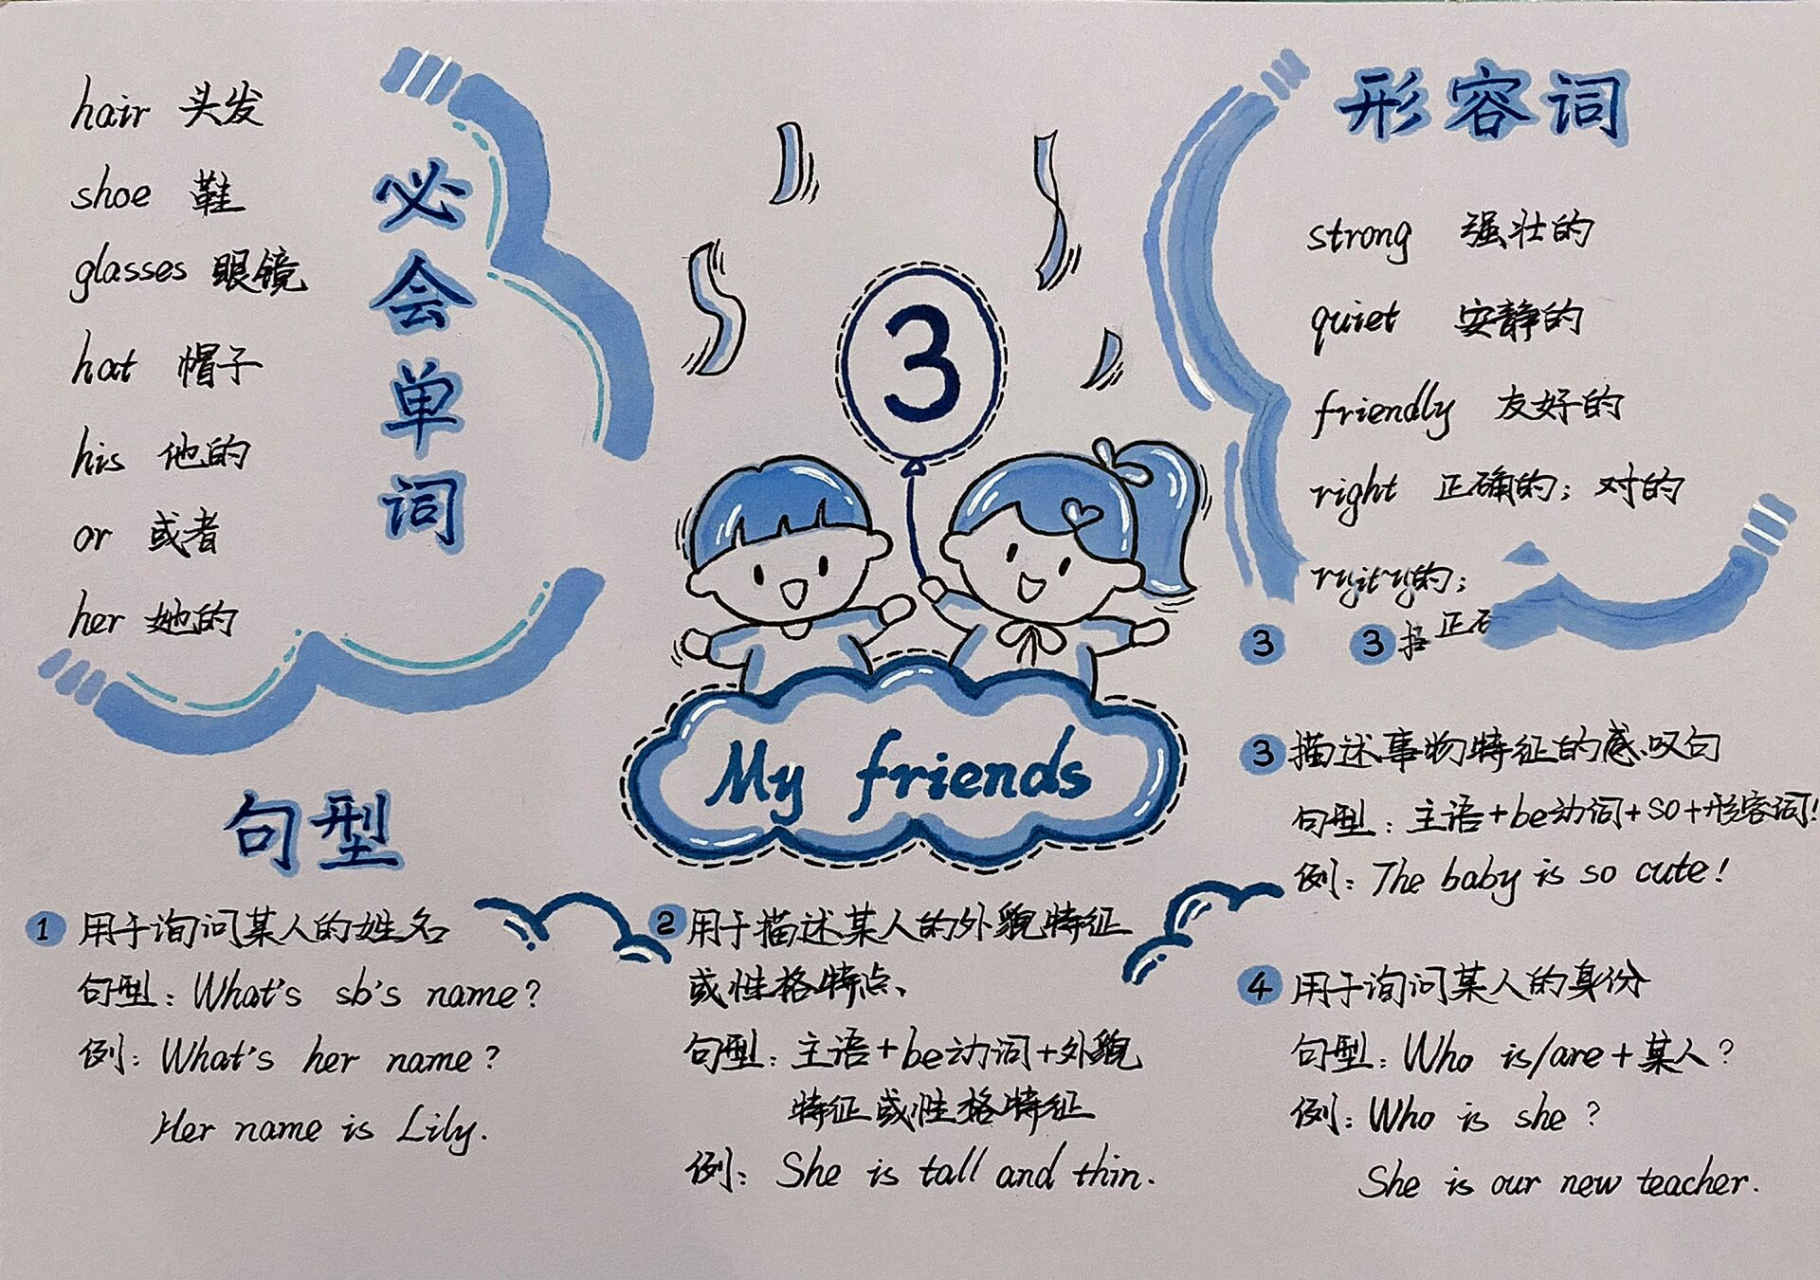 必会单词
hair 头发
shoe 鞋
glasses 眼镜
hat 帽子
his 他的
or 或者
her 她的
3
My friends
形容词
strong 强壮的
quiet 安静的
friendly 友好的
right 正确的；对的
的；
3 3
句型
1 用于询问某人的姓名
句型：What's sb's name?
例：What's her name?
Her name is Lily.
2 用于描述某人的外貌特征
或性格特点、
句型：主语+be动词+外貌
特征或性格特征
例：She is tall and thin.
3 描述事物特征的感叹句
句型：主语+be动词+so+形容词!
例：The baby is so cute!
4 用于询问某人的身份
句型：Who is/are+某人?
例：Who is she?
She is our new teacher.